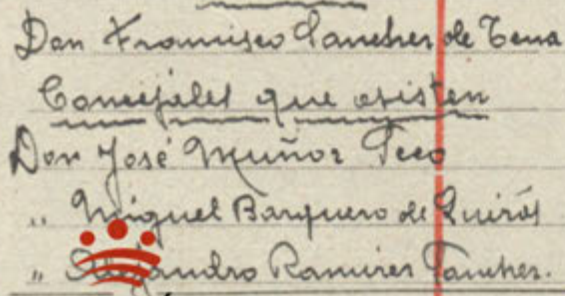 Don Francisco Sanchez de Tena
Concejales que asisten
Don José Muñoz Peco
" Miguel Barquero de Quirós
" Alejandro Ramirez Sanchez.